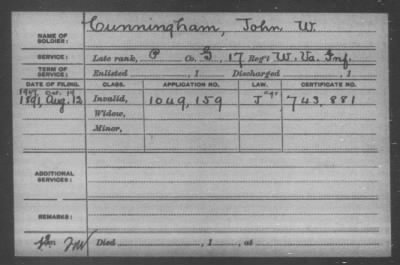 NAME OF SOLDIER: Cunningham, John W.
SERVICE: Late rank, P Co. G, 17 Reg't W. Va. Inf.
TERM OF SERVICE: Enlisted , 1 Discharged , 1
DATE OF FILING. CLASS. APPLICATION NO. LAW. CERTIFICATE NO.
Oct. 19
1891, Aug. 12 Invalid, 1049,159 J 743,881
Widow,
Minor,
ADDITIONAL SERVICES:
REMARKS:
Died , 1 , at